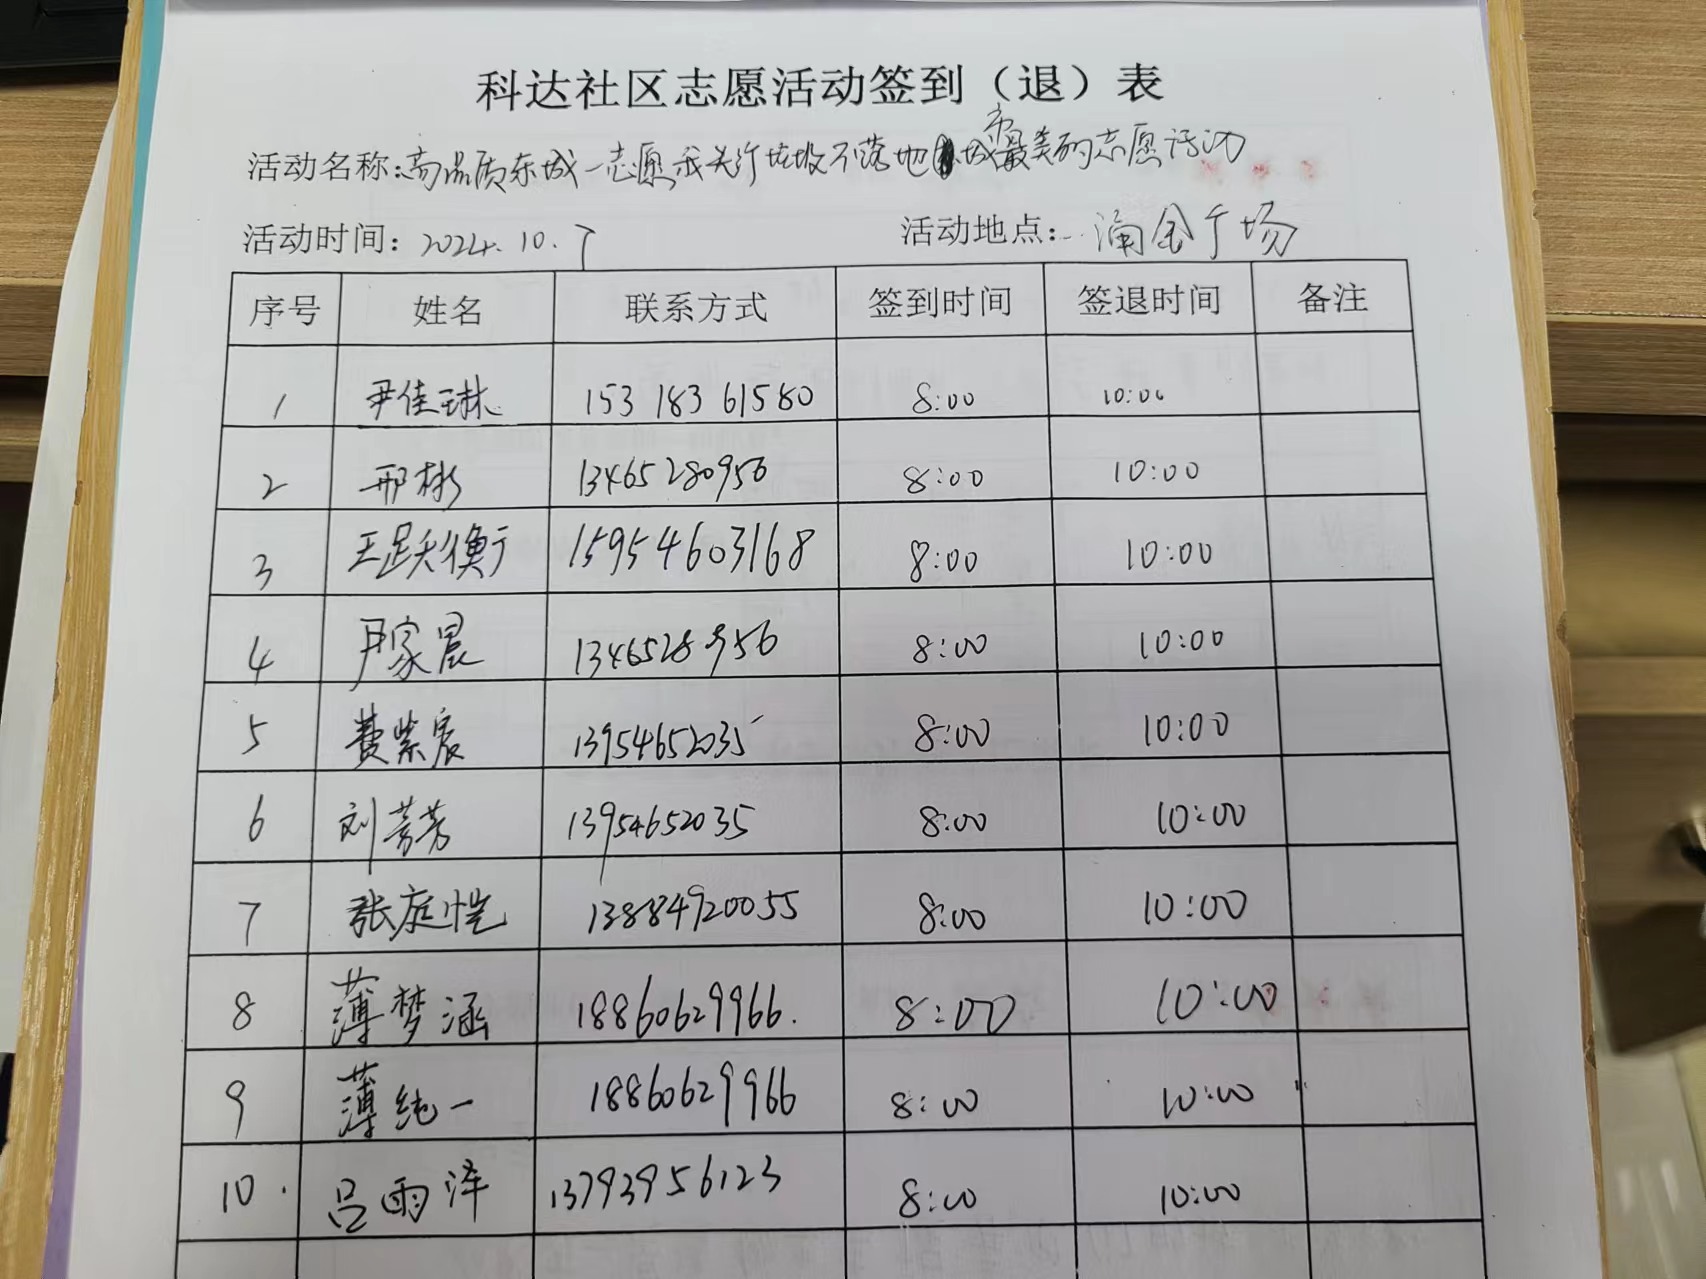 科达社区志愿活动签到（退）表
活动名称:高品质东城一志愿我先行垃圾不落地城市最美的志愿活动
活动时间: 2024.10.7 活动地点: 浦金广场
序号 姓名 联系方式 签到时间 签退时间 备注
1 尹佳琳 153 183 61580 8:00 10:00
2 邢彬 13465280956 8:00 10:00
3 王跃衡 15954603168 8:00 10:00
4 尹家晨 1346528956 8:00 10:00
5 费紫宸 13954652035 8:00 10:00
6 刘芳芳 13954652035 8:00 10:00
7 张庭恺 13884920055 8:00 10:00
8 薄梦涵 18860629966. 8:00 10:00
9 薄纯一 18860629966 8:00 10:00
10. 吕雨泽 13793956123 8:00 10:00